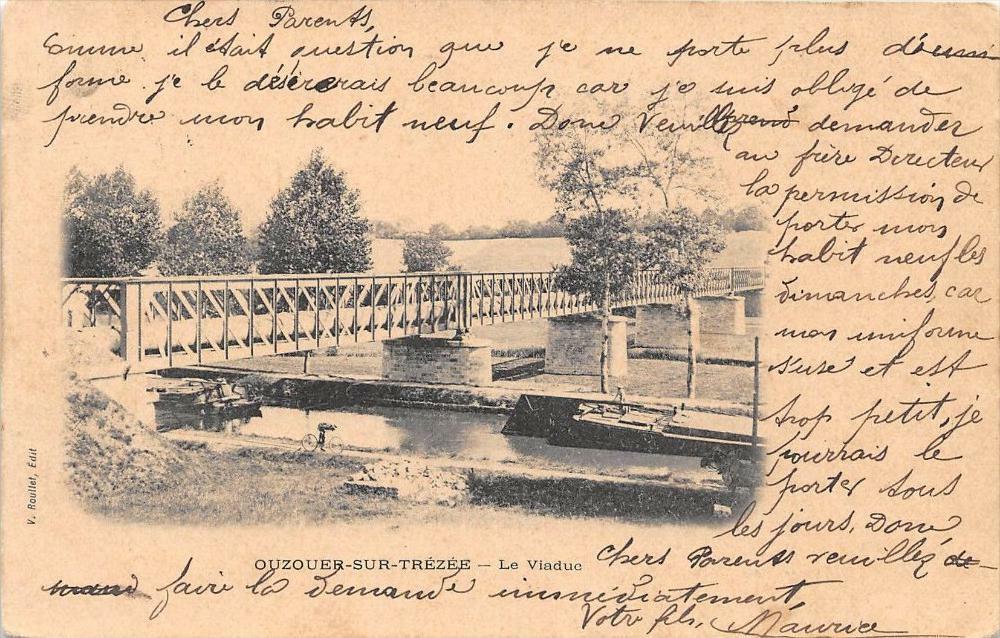 Chers Parents,
Comme il était question que je ne porte plus d'uni
forme je le désirerais beaucoup car je suis obligé de
prendre mon habit neuf. Donc Veuillez demander
au frère Directeur
la permission de
porter mon
habit neuf les
dimanches, car
mon uniforme
s'use et est
trop petit, je
pourrais le
porter tous
les jours, Donc
Chers Parents veuillez de
mand faire la demande immédiatement,
Votre fils, Maurice
OUZOUER-SUR-TRÉZÉE — Le Viaduc
V. Roullet, Édit